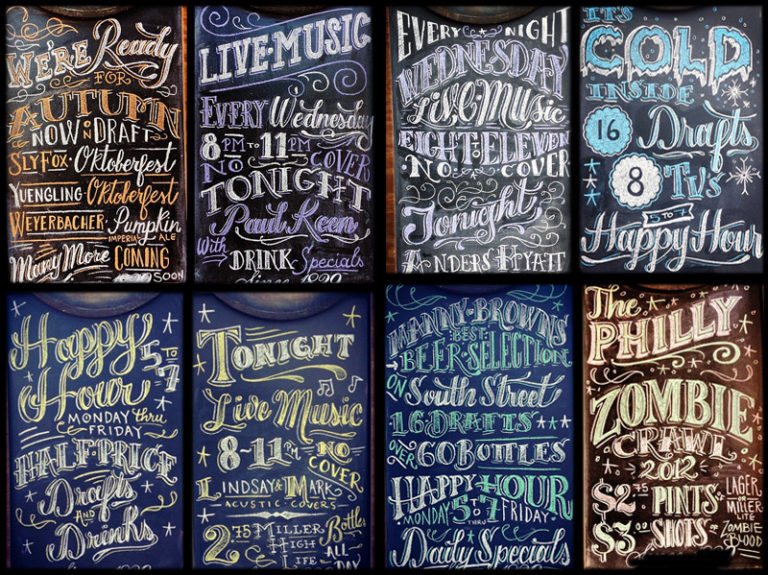 WE'RE Ready
FOR
AUTUMN
NOW IN DRAFT
SLYFOX Oktoberfest
YUENGLING Oktoberfest
WEYERBACHER Pumpkin
IMPERIAL ALE
Many More COMING
SOON
LIVE·MUSIC
EVERY Wednesday
8PM TO 11PM
NO COVER
TONIGHT
Paul Keen
With DRINK Specials
EVERY NIGHT
WEDNESDAY
LIVE MUSIC
EIGHT-ELEVEN
·NO· COVER
Tonight
ANDERS HYATT
IT'S
COLD
INSIDE
16 Drafts
8 TV's
5 TO 7
Happy Hour
Happy 5 TO 7
Hour
MONDAY thru
FRIDAY
HALF·PRICE
Drafts
AND
Drinks
TONIGHT
Live Music
8-11PM NO
COVER
LINDSAY & MARK
ACUSTIC COVERS
2.75 MILLER Bottles
HIGH ALL
LIFE DAY
MANNY·BROWNS
BEST
BEER·SELECTION
ON South Street
16 DRAFTS
OVER 60 BOTTLES
HAPPY HOUR
MONDAY 5 TO 7 FRIDAY
THRU
Daily Specials
The
PHILLY
ZOMBIE
CRAWL
2012
$2.75 PINTS OF LAGER OR MILLER LITE
$3.00 SHOTS OF ZOMBIE BLOOD